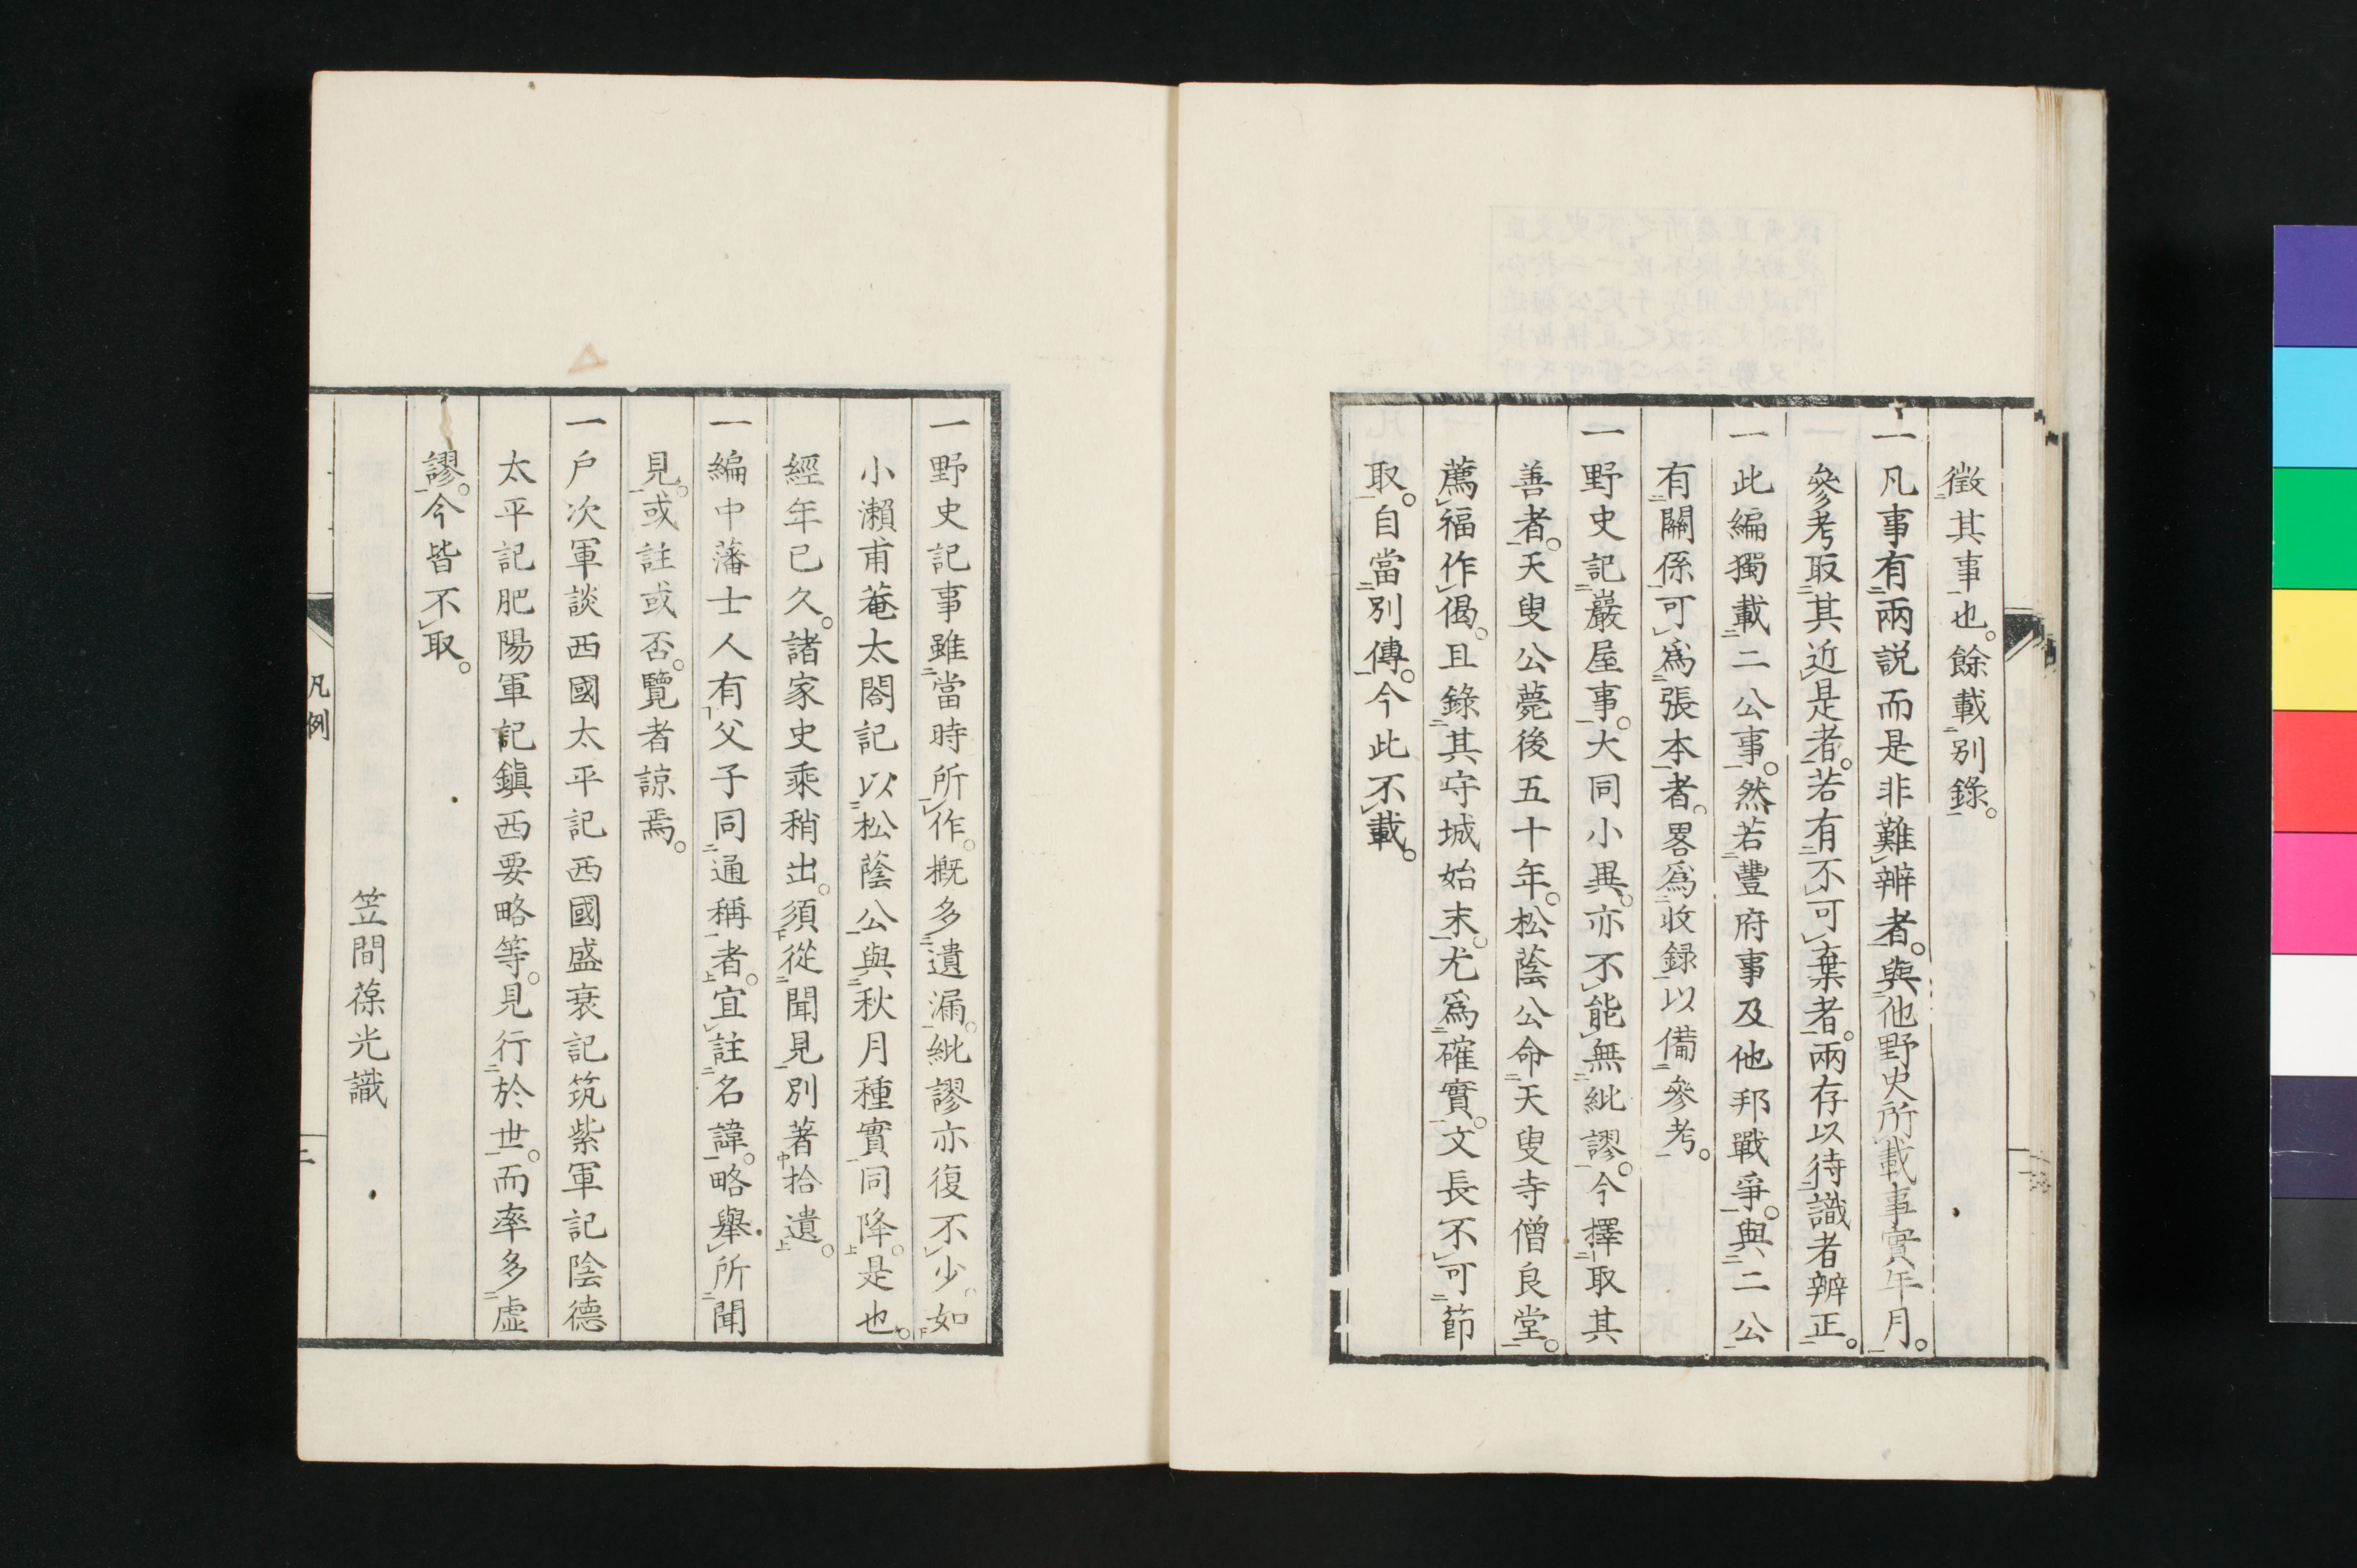 徵其事也。餘載別錄。
一凡事有兩説而是非難辨者。與他野史所載事實年月。
參考取其近是者。若有不可棄者。兩存以待識者辨正。
一此編獨載二公事。然若豐府事及他邦戰爭。與二公
有關係可爲張本者。畧爲收録以備參考。
一野史記巖屋事。大同小異。亦不能無紕謬。今擇取其
善者。天叟公薨後五十年。松蔭公命天叟寺僧良堂。
薦福作偈。且錄其守城始末。尤爲確實。文長不可節
取。自當別傳。今此不載。
一野史記事雖當時所作。概多遺漏。紕謬亦復不少。如
小瀨甫菴太閤記以松蔭公與秋月種實同降。是也。
經年已久。諸家史乘稍出。須從聞見別著拾遺。
一編中藩士人有父子同通稱者。宜註名諱。略舉所聞
見。或註或否。覽者諒焉。
一戶次軍談西國太平記西國盛衰記筑紫軍記陰德
太平記肥陽軍記鎭西要略等。見行於世。而率多虛
謬。今皆不取。
笠間葆光識
凡例
二